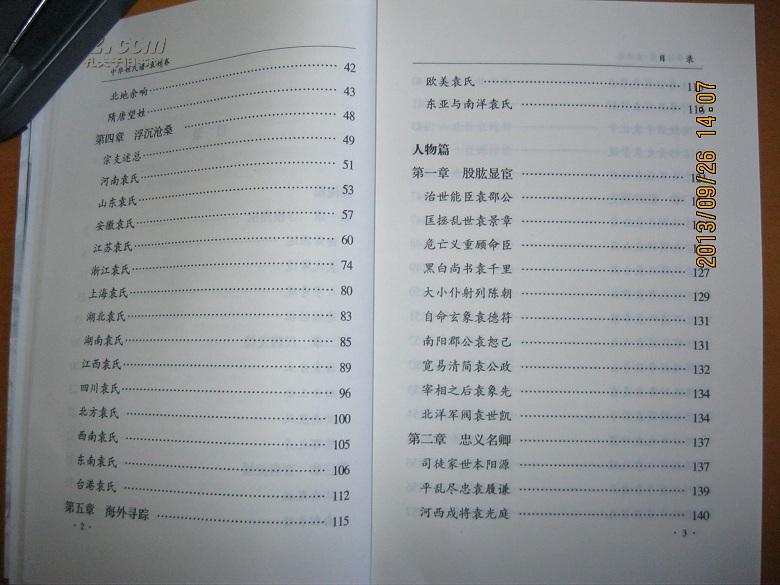 中华姓氏谱·袁姓卷
42
北地余响 43
隋唐望姓 48
第四章 浮沉沧桑 49
宗支述总 51
河南袁氏 53
山东袁氏 57
安徽袁氏 60
江苏袁氏 74
浙江袁氏 80
上海袁氏 83
湖北袁氏 85
湖南袁氏 89
江西袁氏 96
四川袁氏 100
北方袁氏 105
西南袁氏 106
东南袁氏 112
台港袁氏 115
第五章 海外寻踪
·2·
目 录
欧美袁氏
东亚与南洋袁氏
人物篇
第一章 股肱显宦
治世能臣袁邵公
匡拯乱世袁景章
危亡义重顾命臣
黑白尚书袁千里 127
大小仆射列陈朝 129
自命玄象袁德符 131
南阳郡公袁恕己 131
宽易清简袁公政 132
宰相之后袁象先 134
北洋军阀袁世凯 134
第二章 忠义名卿 137
司徒家世本阳源 137
平乱尽忠袁履谦 139
河西戍将袁光庭 140
·3·
2013/09/26 14:07